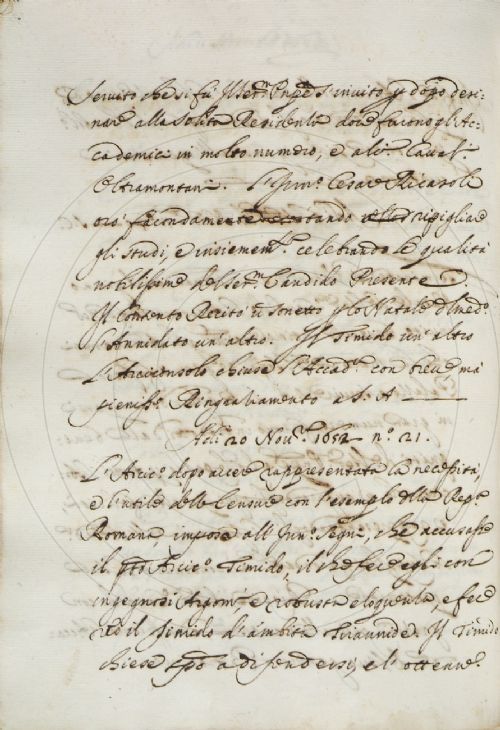 servito che si fù Il Ser.mo Pnp̃e s'invito p̱ dopo desi-
nare alla solita Residenza dove furono gli Ac-
cademici in molto numero, e altri Caval.ri
Oltramontani. L'Inn.o Cesare Ricasoli
orò facondamente esortando a ripigliare
gli studi, e insiem.te celebrando le qualità
nobilissime del Ser.mo Candido Presente.
Il Contento Recitò ũ sonetto p̱ lo Natale d' med.o
l'Annidato un'altro. Il Timido un'altro
L'Arciconsolo chiuse l'Accad.a con breve ma
pieniss.o Ringraziamento a S. A.
Adi 20 Nov.e 1652 n.o 21.
L'Arcic.o dopo aver rappresentata la necessità,
e l'utile delle Censure con l'esempio della Rep.a
Romana, impose all'Inn.o Segni, che accusasse
il p̃to Arcic.o Timido, il che fece egli con
ingegnosi Argom.ti e robusta eloquenza, e fece
reo il Timido d'ambita Tirannide. Il Timido
chiese tp̃o a difendersi, e l'ottenne.